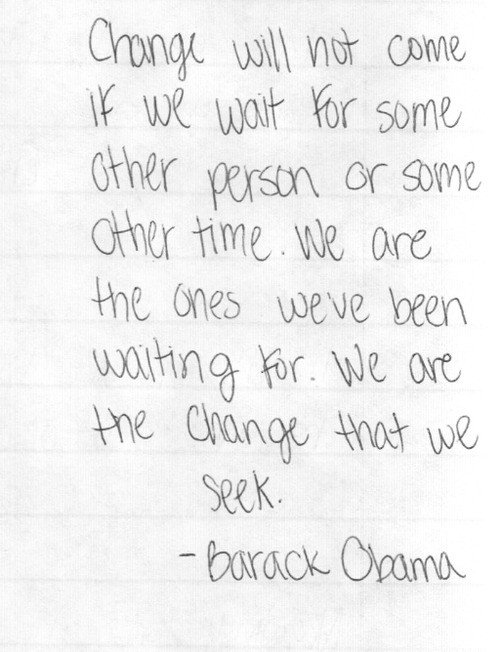 Change will not come
if we wait for some
other person or some
other time. We are
the ones we've been
waiting for. We are
the change that we
seek.
-Barack Obama